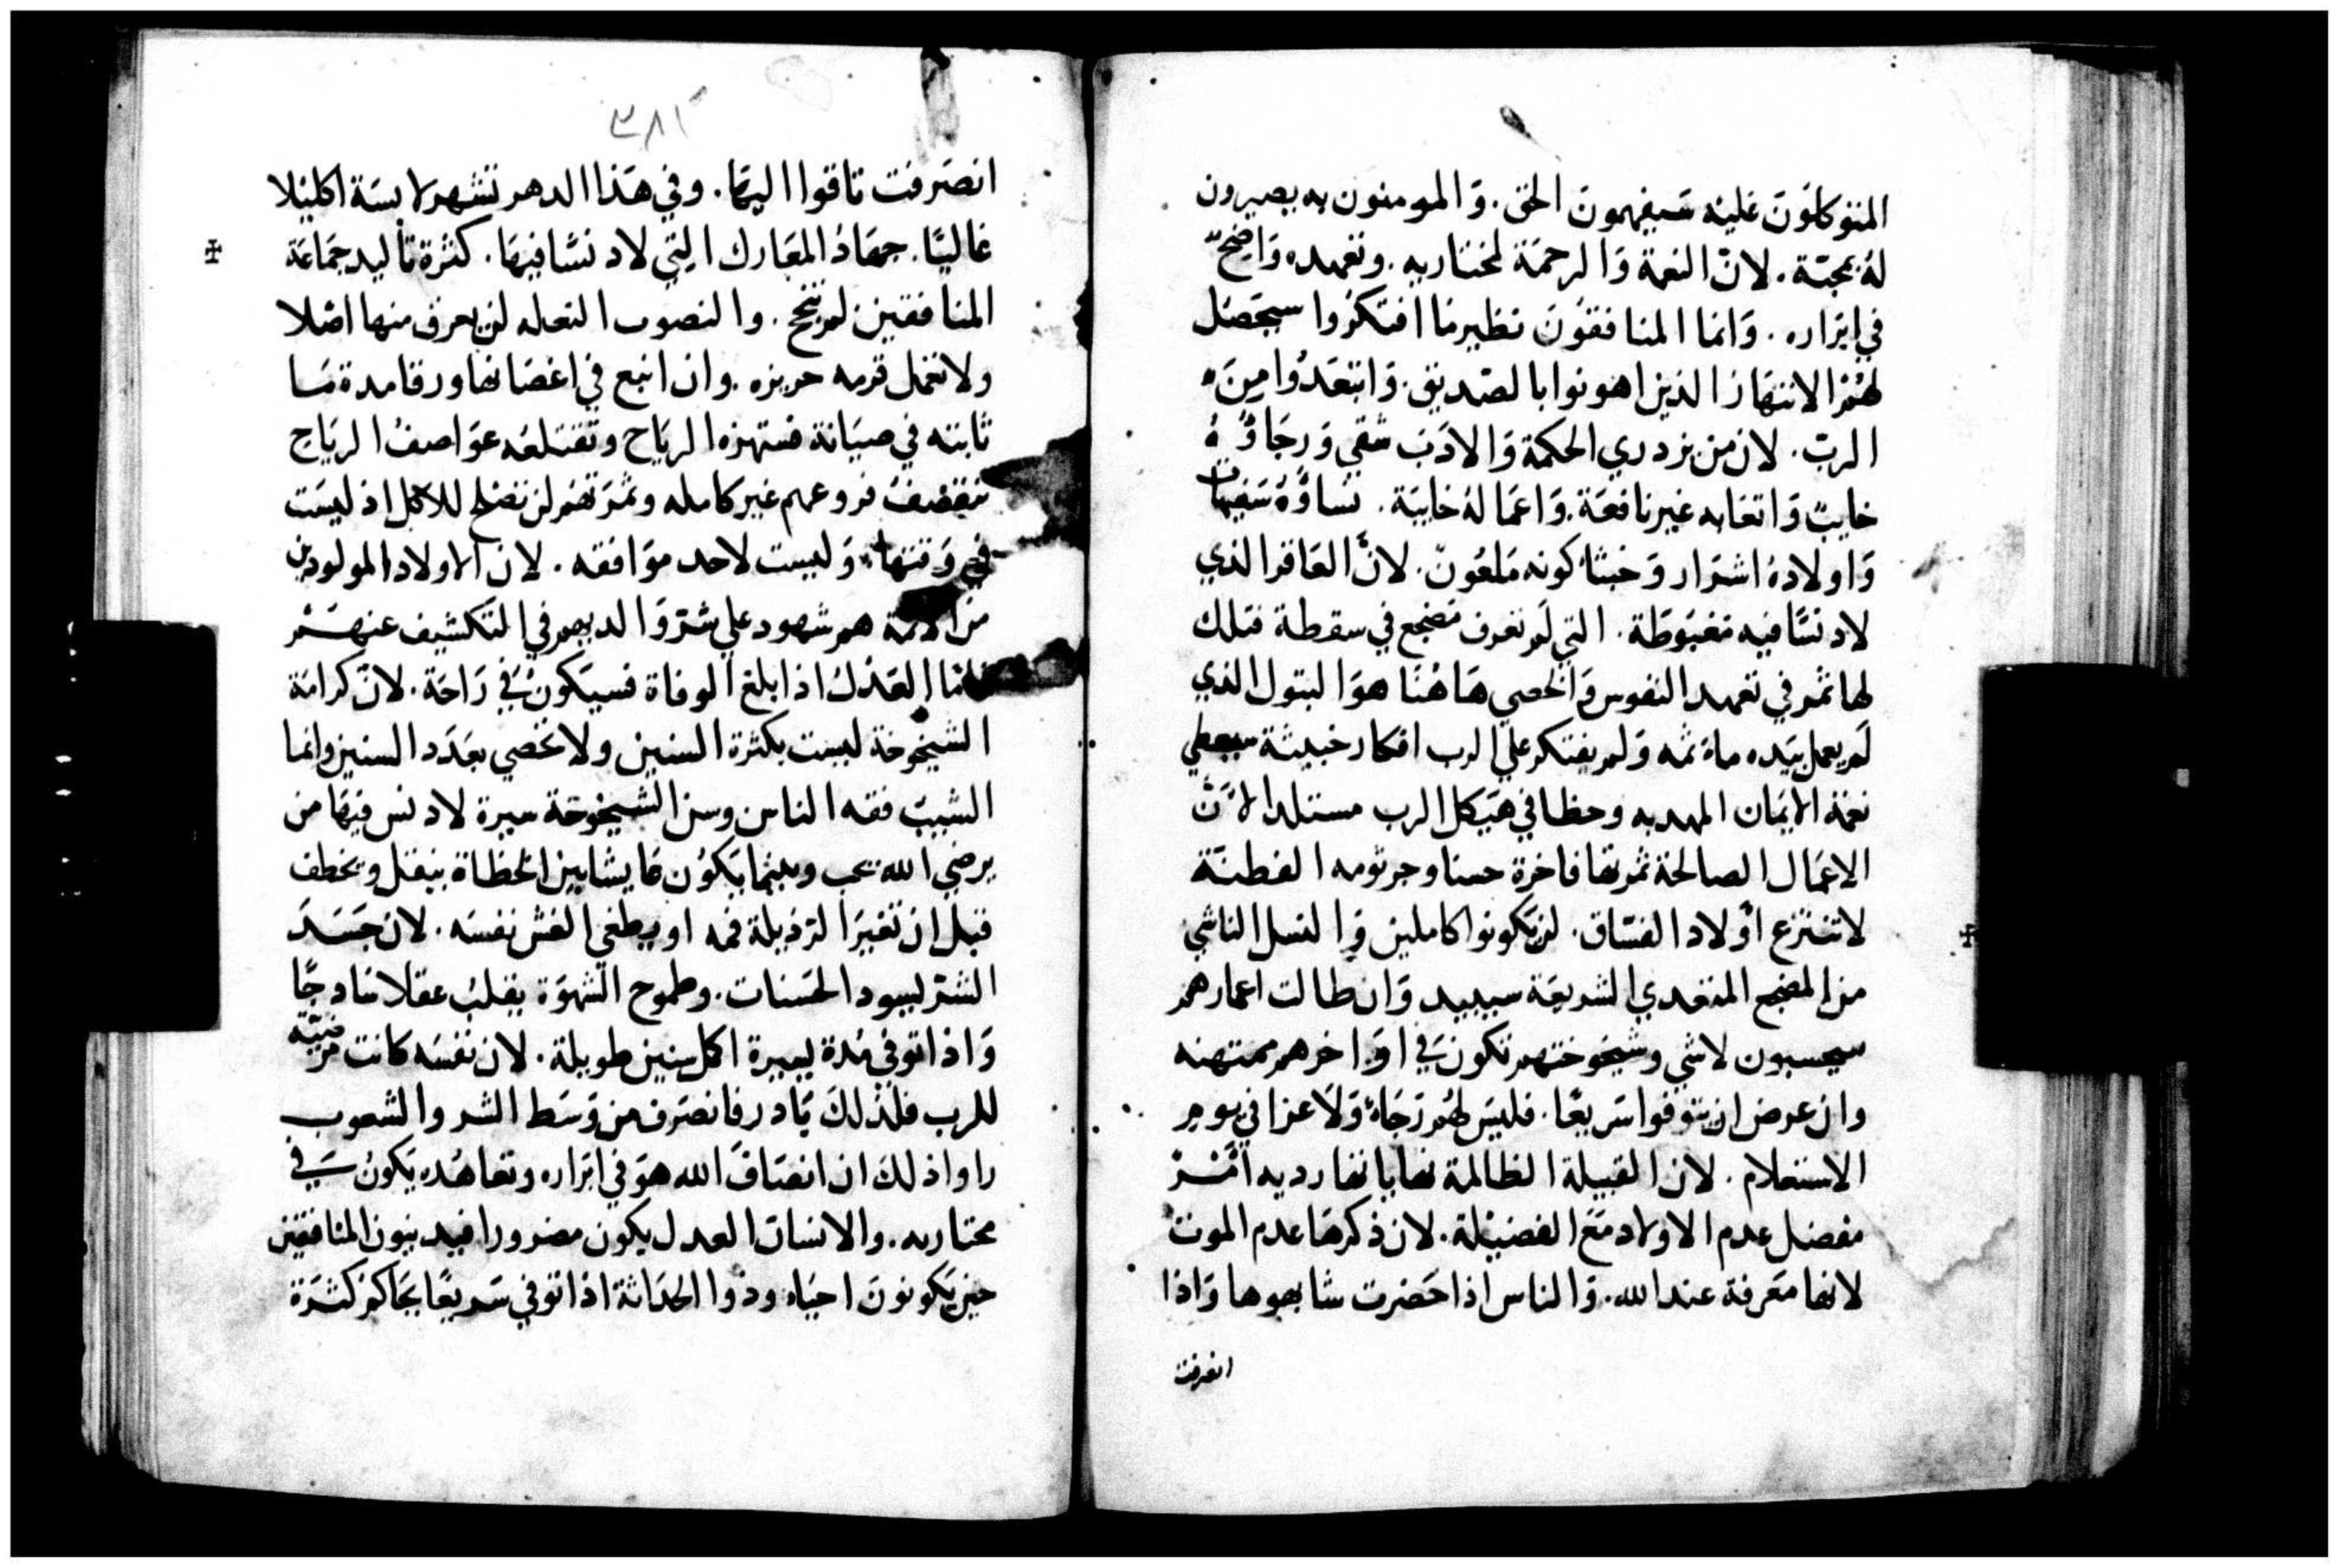 المتوكلون عليه سيفهمون الحق. والمومنون به يصيرون
له بمحبة. لانّ النعمة والرحمة لمختاريه. وتعهده واضحٌ
في ابراره. وانما المنافقون نظير ما افتكروا سيحصل
لهُم الانتهار الذين اهونوا بالصديق. وابتعدوا من
الرب. لان من يزدري الحكمة والادب شقي ورجاوُهُ
خايبٌ واتعابه غير نافعة. واعماله خايبة. نساوُهُ سفيهات
واولاده اشرار وخبثا كونه ملعون. لانّ العاقر الذي
لا دنسًا فيه مغبوطة. التي لم تعرف مضجع في سقطة فتلك
لها ثمر في تعهد النفوس والخصي هاهُنا هو البتول الذي
لم يعمل بيده ماثمه ولم يفتكر علي الرب افكار خبيثة سيعطي
نعمة الايمان المهديه وحظا في هيكل الرب مستلدا لانّ
الاعمال الصالحة ثمرتها فاخرة حسنا وجرثومه الفطنة
لا تنتزع اولاد الفسّاق. لن يكونوا كاملين والنسل الناشي
من المضجع المتعدي الشريعة سيبيد وان طالت اعمارهم
سيحسبون لاشي وشيخوختهم تكون في اواخرهم ممتهنه
وان عرض ان يتوفوا سريعًا. فليس لهُم رجاءٌ ولا عزا في يوم
الاستعلام. لان القبيلة الظالمة نهاياتها رديه امّر
مفضل عدم الاولاد مع الفضيلة. لان ذكرها عدم الموت
لانها معرفة عند الله. والناس اذا حضرت شابهوها واذا
انصرفت
٣٨١
انصرفت تاقوا اليها. وفي هذا الدهر تشهر لابسة اكليلا
غالبًا. جهاد المعارك التي لا دنسًا فيها. كثرة تاليد جماعة
المنافقين لم تنجح. والنصوب النعله لن يعرف منها اصلا
ولا تعمل قرمه حريزه. وان اينع في اغصانها ورقا مدة ما
ثابته في صيانة فستهزه الرياح وتقتلعه عواصف الرياح
فتقصف فروعهم غير كامله وثمرتهم لن تصلح للاكل اذ ليست
في وقتها وليست لاحد موافقه. لان الاولاد المولودين
من الاثمة هم شهود علي شر والديهم في التكشيف عنهم
فاما العدل اذا بلغ الوفاة فسيكون في راحة. لان كرامة
الشيخوخة ليست بكثرة السنين ولا تحصي بعدد السنين وانما
الشيب فقه الناس وسن الشيخوخة سيرة لا دنس فيها من
يرضي الله يحب وبينما يكون عايشا بين الخطاة ينقل وتخطف
قبل ان تغير الرذيلة فهمه او يطغي الغش نفسه. لان حسد
الشر ليسود الحسنات. وطموح الشهوة يقلب عقلا سادجًا
واذا توفي مُدة يسيرة اكمل سنين طويلة. لان نفسه كانت مرضيّه
للرب فلذلك بادر فانصرف من وسط الشر والشعوب
راوا ذلك ان انصاف الله هو في ابراره وتعاهُده يكون في
مختاريه. والانسان العدل يكون مضرورا فيدينون المنافقين
حين يكونون احياء وذوا الحداثة اذا توفي سريعًا يحاكم كثرة